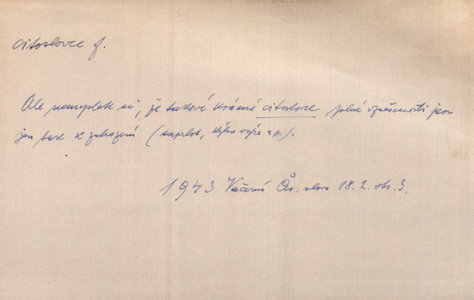 citoslovce f.
Ale nemyslete si, že takové krásné citoslovce, plné vznešenosti jsou
jen tak k zahození (saprlot, kýho výra a p.).
1943 Večerní Čes. slovo 18.2. str. 3.